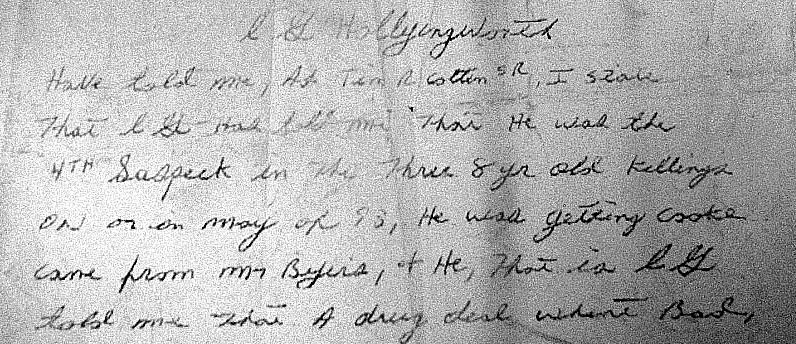 L G Hollyingworth
Have told me, At Tim R Cotten SR, I state
That L G Has told me That He was the
4TH Suspeck in the Three 8 yr old Killings
on or on may of 93, He was getting cooke
cane from mr Byers, + He, That is L G
told me that A drug deal whent Bad,